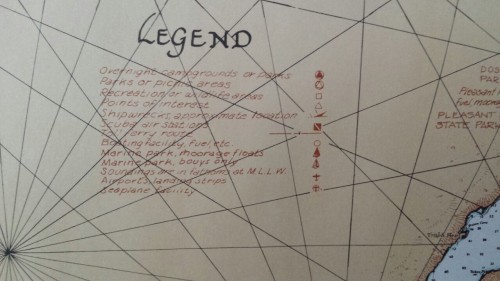 LEGEND
Overnight campgrounds or parks
Parks or picnic areas
Recreation or wildlife areas
Points of interest
Shipwrecks approximate location
Scuba air stations
Ferry route
Boating facility, fuel etc
Marine park, moorage floats
Marine park, bouys only
Soundings are in fathoms at M.L.L.W.
Airports, landing strips
Seaplane facility
DOS
PAR
Pleasant
fuel, moora
PLEASANT
STATE PARK